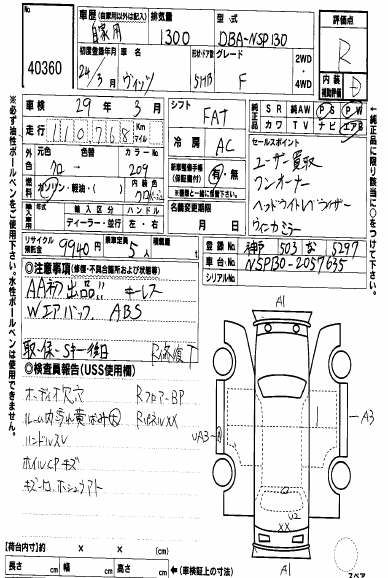 No.
40360
車歴(自家用以外は記入)
自家用
排気量
1300
型・式
DBA-NSP130
評価点
R
初度登録年月
24/3月
車名
ヴィッツ
形状・ドア数
5HB
グレード
F
2WD・4WD
内装補助評価
D
車検 29年 3月
シフト
FAT
純正品
SR 純AW PS PW
カワ TV ナビ エアB
走行 110768 Km マイル
冷房
AC
セールスポイント
ユーザー買取
ワンオーナー
ヘッドライトレベライザー
ウィンカミラー
外色
元色 色替 カラーNo.
クロ → 209
燃料
ガソリン・軽油・( )
内装色
新車整備手帳(保証書付)
有・無
輸入車用
輸入区分 ハンドル
ディーラー・並行 左・右
名義変更期限
月 日
リサイクル預託金
9940円
乗車定員
5人
積載量
登録No. 神戸 503 な 5297
車台No. NSP130-2057635
シリアルNo.
◎注意事項(修復・不具合箇所および状態等)
AA初出品!! キーレス
Wエアバック ABS
取・保・Sキー後日 R修復
◎検査員報告(USS使用欄)
ボディ穴 RフロアーBP
ルーム内汚れ RパネルXX
ハンドルスレ
ホイルCPキズ
A1
A3
UA3
U2
XX
A1
【荷台内寸】約 × × (cm)
長さ cm 幅 cm 高さ cm ←(車検証上の寸法)
スペア
※必ず油性ボールペンをご使用下さい。水性ボールペンは使用できません。
←純正品に限り該当に○をつけて下さい。